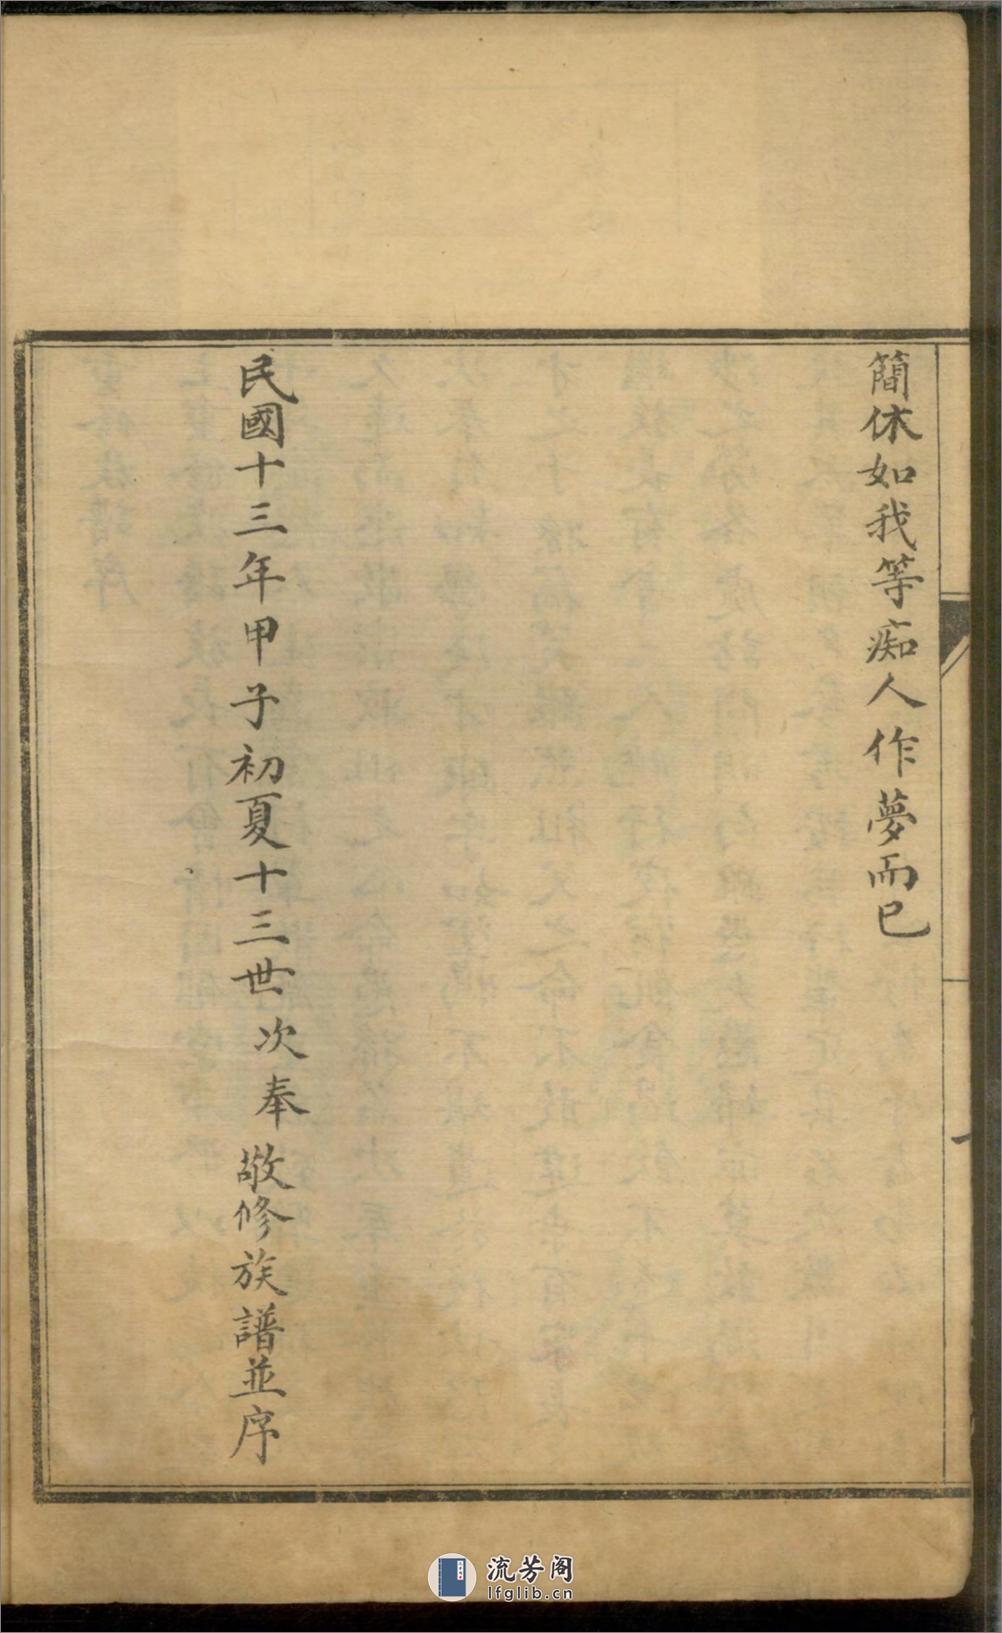 簡休如我等痴人作夢而已
民國十三年甲子初夏十三世次奉敬修族譜並序
流芳阁
lfglib.cn